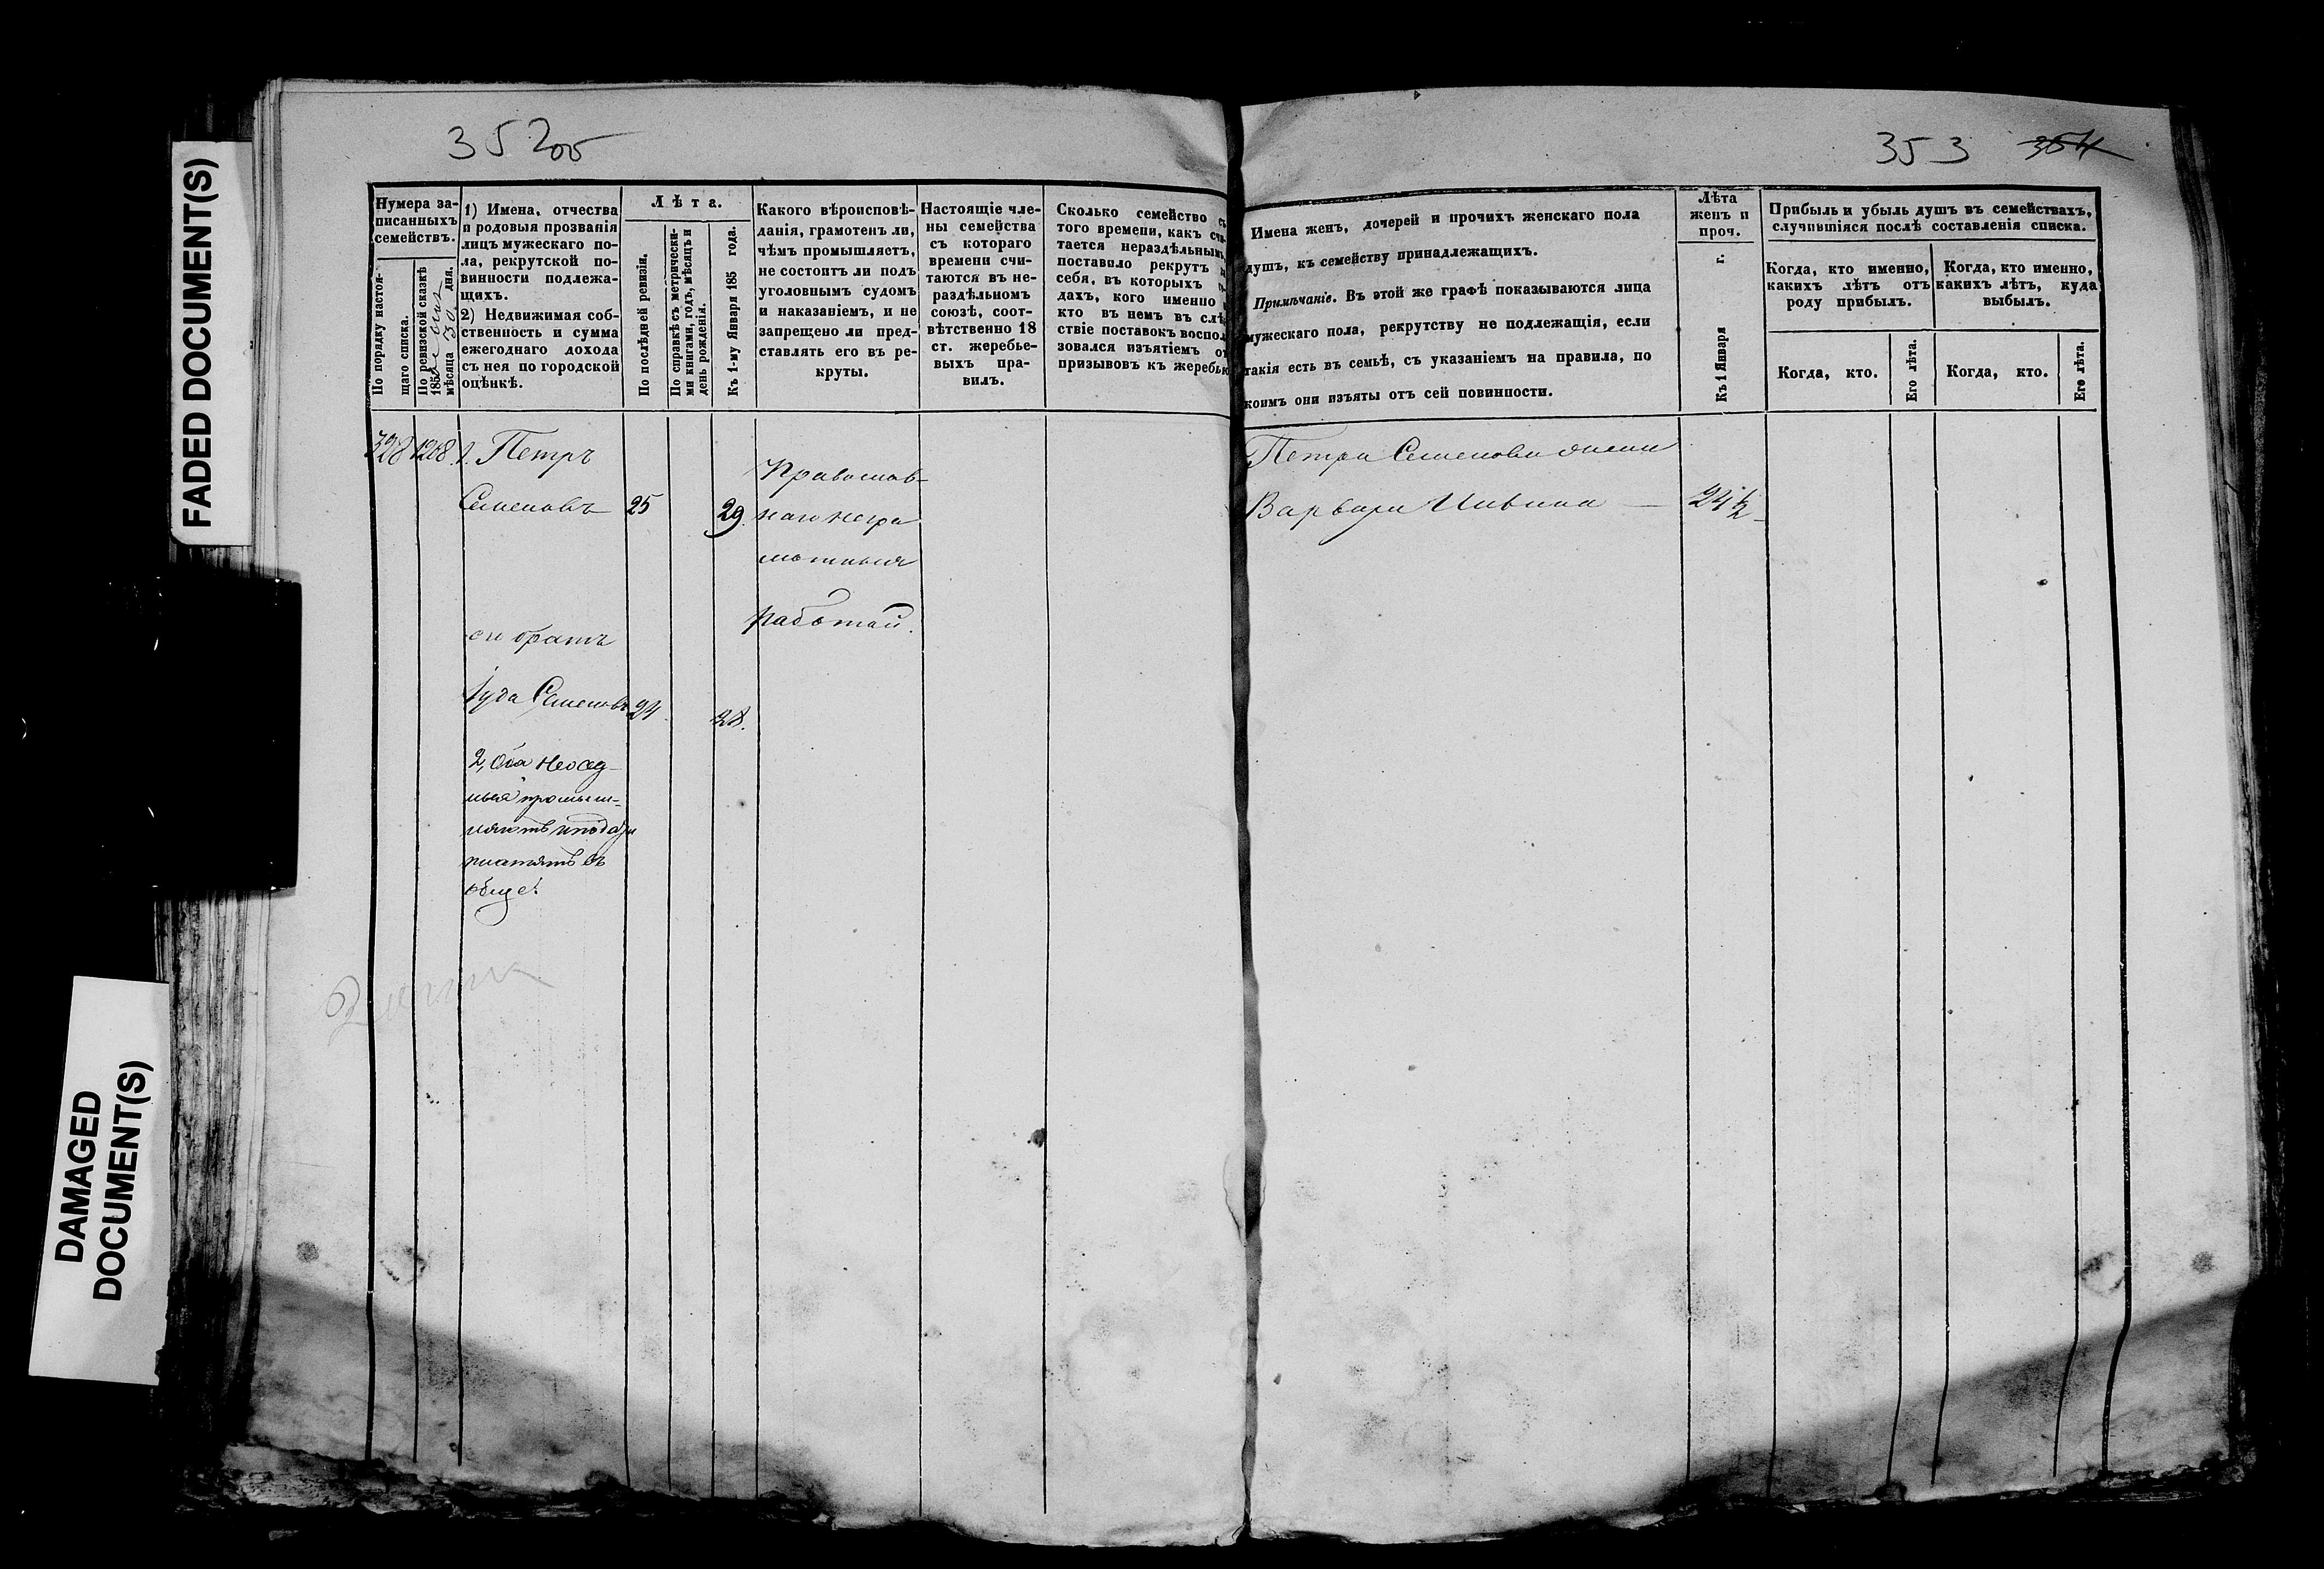 FADED DOCUMENT(S)
DAMAGED
DOCUMENT(S)
352об
Нумера за-
писанныхъ
семействъ.
По порядку настоя-
щаго списка.
По ревизской сказкѣ
185
мѣсяца 30 дня.
1) Имена, отчества
и родовыя прозванія
лицъ мужескаго по-
ла, рекрутской по-
винности подлежа-
щихъ.
2) Недвижимая соб-
ственность и сумма
ежегоднаго дохода
съ нея по городской
оцѣнкѣ.
Лѣта.
По послѣдней ревизіи.
По справкѣ съ метрически-
ми книгами, годъ, мѣсяцъ и
день рожденія.
Къ 1-му Января 185 года.
Какого вѣроисповѣ-
данія, грамотенъ ли,
чѣмъ промышляетъ,
не состоитъ ли подъ
уголовнымъ судомъ
и наказаніемъ, и не
запрещено ли пред-
ставлять его въ ре-
круты.
Настоящіе чле-
ны семейства
съ котораго
времени счи-
таются въ не-
раздѣльномъ
союзѣ, соот-
вѣтственно 18
ст. жеребье-
выхъ пра-
вилъ.
Сколько семейство съ
того времени, какъ счи-
тается нераздѣльнымъ
поставило рекрутъ
себя, въ которыхъ
дахъ, кого именно
кто въ немъ въ слѣ
ствіе поставокъ воспол
зовался изъятіемъ от
призывовъ къ жеребью
328 1208 1. Петръ
Семеновъ 25 29.
Православ-
наго негра
мотныя
работай.
ег братъ
Іуда Семеновъ 24 28.
2, Оба неосед-
лыя промыш-
ляютъ и подати
платятъ въ
обще.
353 354
Имена женъ, дочерей и прочихъ женскаго пола
душъ, къ семейству принадлежащихъ.
Примѣчаніе. Въ этой же графѣ показываются лица
мужескаго пола, рекрутству не подлежащія, если
такія есть въ семьѣ, съ указаніемъ на правила, по
коимъ они изъяты отъ сей повинности.
Лѣта
женъ и
проч.
Къ 1 Января г.
Прибыль и убыль душъ въ семействахъ,
случившіяся послѣ составленія списка.
Когда, кто именно,
какихъ лѣтъ отъ
роду прибылъ.
Когда, кто именно,
какихъ лѣтъ, куда
выбылъ.
Когда, кто.
Его лѣта.
Когда, кто.
Его лѣта.
Петра Семенова жена
Варвара Ивана — 24 ½